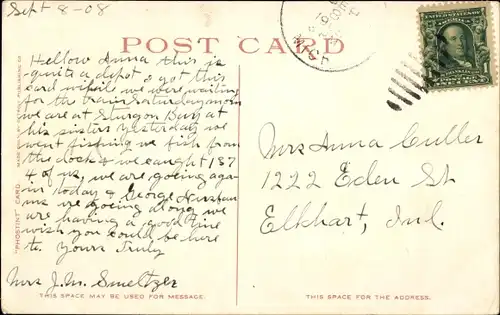 Sept 8-08
POST CARD
Hellow Anna this is
quite a depot & got this
card while we were waiting
for the train Saturday morn
we are at Sturgon Bay at
his sisters yesterday we
went fishing we fish from
the dock & we caught 187
4 of us, we are goeing aga-
in today & George
ms goeing along we
are having a good time
wish you could be here
to. Yours Truly
Mrs J.M. Smeltzer
Mrs Anna Culler
1222 Eden St
Elkhart, Ind.
"PHOSTINT" CARD
MADE ONLY BY PUBLISHING CO
THIS SPACE MAY BE USED FOR MESSAGE.
THIS SPACE FOR THE ADDRESS.
MICH